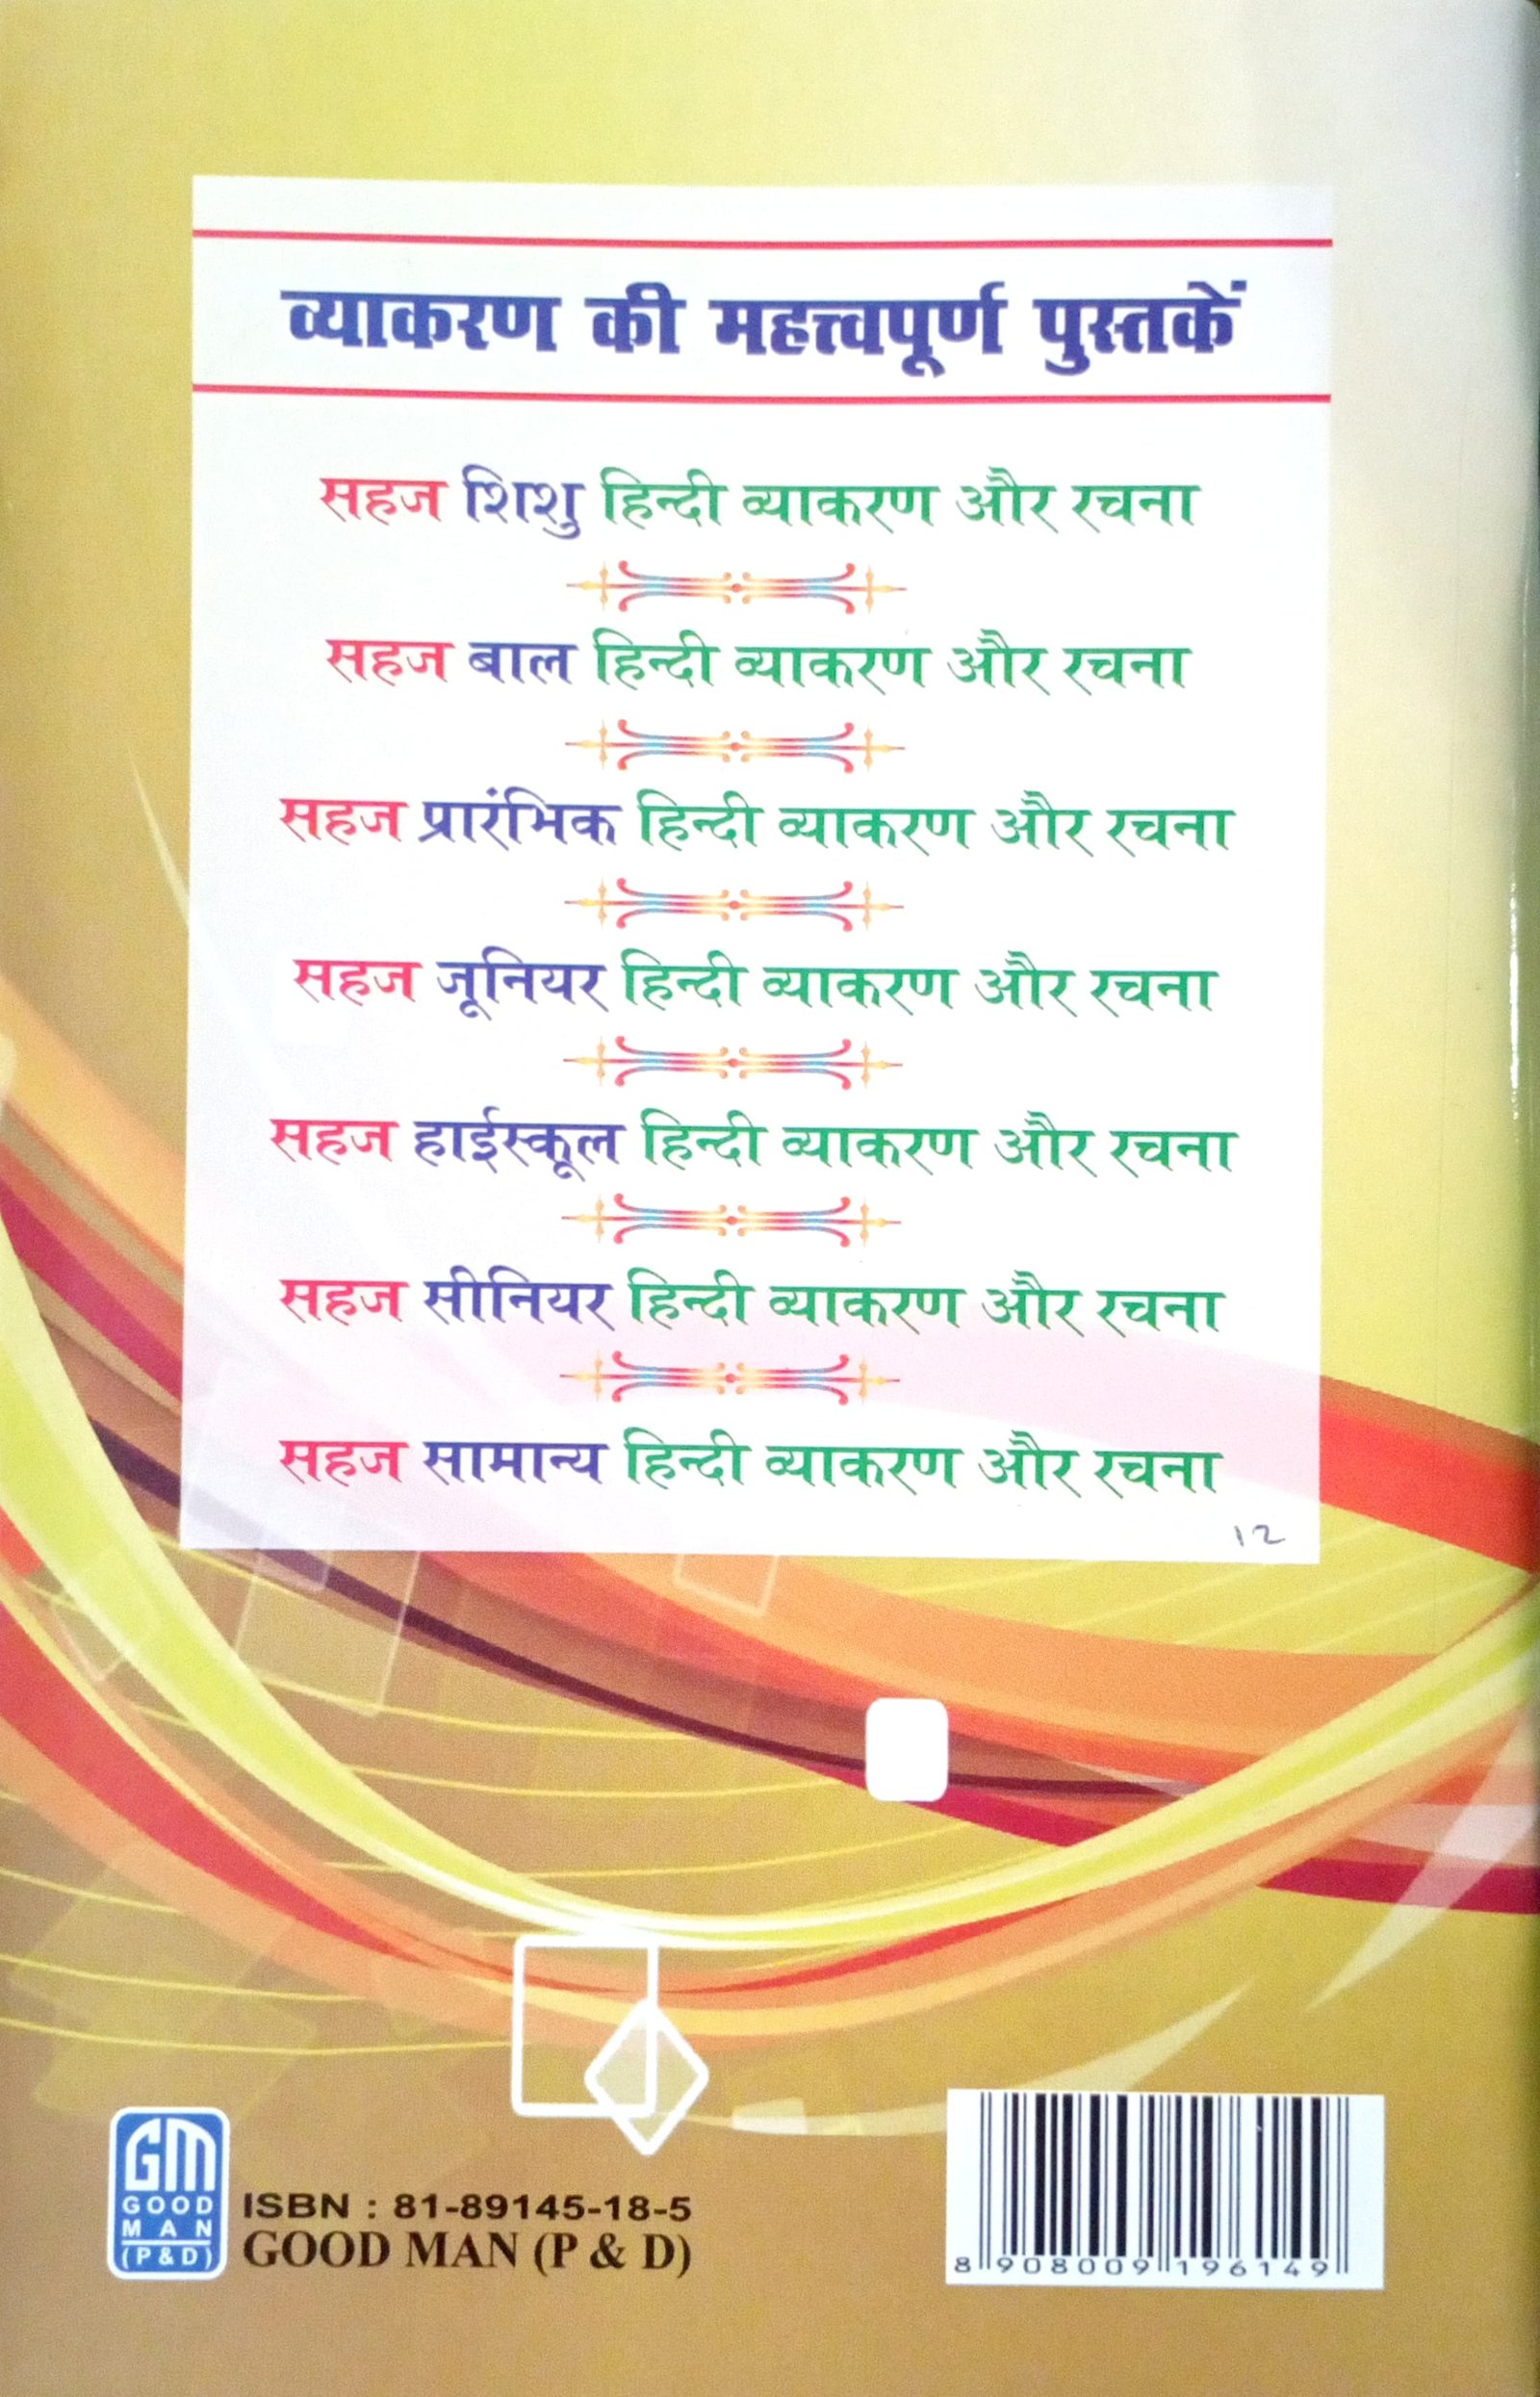 व्याकरण की महत्त्वपूर्ण पुस्तकें
सहज शिशु हिन्दी व्याकरण और रचना
सहज बाल हिन्दी व्याकरण और रचना
सहज प्रारंभिक हिन्दी व्याकरण और रचना
सहज जूनियर हिन्दी व्याकरण और रचना
सहज हाईस्कूल हिन्दी व्याकरण और रचना
सहज सीनियर हिन्दी व्याकरण और रचना
सहज सामान्य हिन्दी व्याकरण और रचना
12
GM
GOOD
MAN
(P & D)
ISBN : 81-89145-18-5
GOOD MAN (P & D)
8 908009 196149